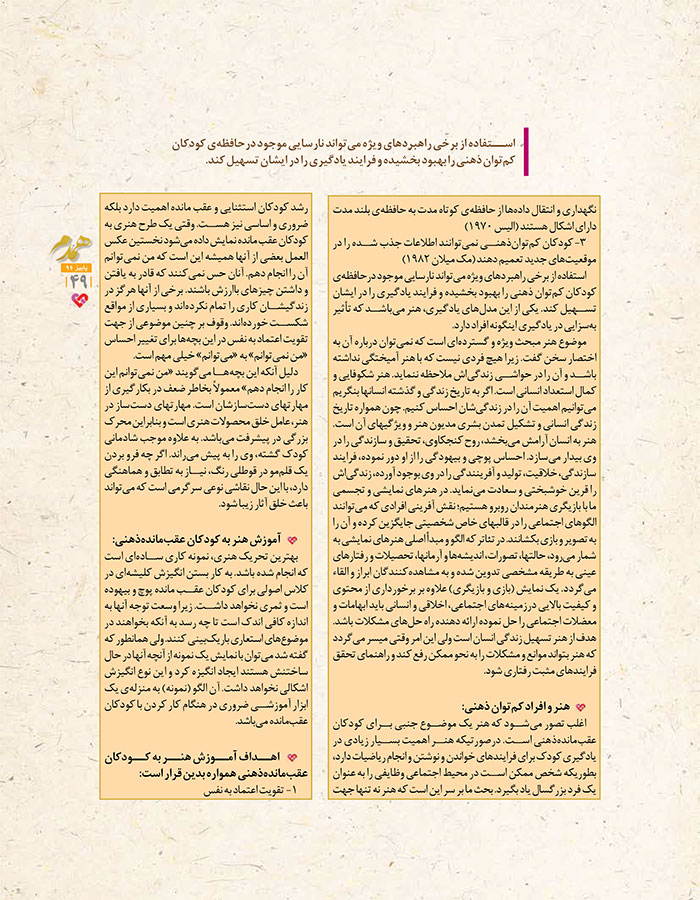 استفاده از برخی راهبردهای ویژه می‌تواند نارسایی موجود در حافظه‌ی کودکان
کم‌توان ذهنی را بهبود بخشیده و فرایند یادگیری را در ایشان تسهیل کند.
همدم
پاییز ۹۶
۴۹
نگهداری و انتقال داده‌ها از حافظه‌ی کوتاه مدت به حافظه‌ی بلند مدت
دارای اشکال هستند (الیس ۱۹۷۰)
۳- کودکان کم‌توان‌ذهنی نمی‌توانند اطلاعات جذب شده را در
موقعیت‌های جدید تعمیم دهند (مک‌میلان ۱۹۸۲)
استفاده از برخی راهبردهای ویژه می‌تواند نارسایی موجود در حافظه‌ی
کودکان کم‌توان ذهنی را بهبود بخشیده و فرایند یادگیری را در ایشان
تسهیل کند. یکی از این مدل‌های یادگیری، هنر می‌باشد که تأثیر
به‌سزایی در یادگیری اینگونه افراد دارد.
موضوع هنر مبحث ویژه و گسترده‌ای است که نمی‌توان درباره آن به
اختصار سخن گفت. زیرا هیچ فردی نیست که با هنر آمیختگی نداشته
باشد و آن را در حواشی زندگی‌اش ملاحظه ننماید. هنر شکوفایی و
کمال استعداد انسانی است. اگر به تاریخ زندگی و گذشته انسانها بنگریم
می‌توانیم اهمیت آن را در زندگی‌شان احساس کنیم. چون همواره تاریخ
زندگی انسانی و تشکیل تمدن بشری مدیون هنر و ویژگیهای آن است.
هنر به انسان آرامش می‌بخشد، روح کنجکاوی، تحقیق و سازندگی را در
وی بیدار می‌سازد. احساس پوچی و بیهودگی را از او دور نموده، فرایند
سازندگی، خلاقیت، تولید و آفرینندگی را در وی بوجود آورده، زندگی‌اش
را قرین خوشبختی و سعادت می‌نماید. در هنرهای نمایشی و تجسمی
ما با بازیگری هنرمندان روبرو هستیم؛ نقش آفرینی افرادی که می‌توانند
الگوهای اجتماعی را در قالبهای خاص شخصیتی جایگزین کرده و آن را
به تصویر و بازی بکشانند. در تئاتر که الگو و مبدأ اصلی هنرهای نمایشی به
شمار می‌رود، حالتها، تصورات، اندیشه‌ها و آرمانها، تحصیلات و رفتارهای
عینی به طریقه مشخصی تدوین شده و به مشاهده کنندگان ابراز و القاء
می‌گردد. یک نمایش (بازی و بازیگری) علاوه بر برخورداری از محتوی
و کیفیت بالایی در زمینه‌های اجتماعی، اخلاقی و انسانی باید ابهامات و
معضلات اجتماعی را حل نموده ارائه دهنده راه حل‌های مشکلات باشد.
هدف از هنر تسهیل زندگی انسان است ولی این امر وقتی میسر می‌گردد
که هنر بتواند موانع و مشکلات را به نحو ممکن رفع کند و راهنمای تحقق
فرایندهای مثبت رفتاری شود.
هنر و افراد کم‌توان ذهنی:
اغلب تصور می‌شود که هنر یک موضوع جنبی برای کودکان
عقب‌مانده‌ذهنی است. در صورتیکه هنر اهمیت بسیار زیادی در
یادگیری کودک برای فرایندهای خواندن و نوشتن و انجام ریاضیات دارد،
بطوریکه شخص ممکن است در محیط اجتماعی وظایفی را به عنوان
یک فرد بزرگسال یاد بگیرد. بحث ما بر سر این است که هنر نه تنها جهت
رشد کودکان استثنایی و عقب مانده اهمیت دارد بلکه
ضروری و اساسی نیز هست. وقتی یک طرح هنری به
کودکان عقب مانده نمایش داده می‌شود نخستین عکس
العمل بعضی از آنها همیشه این است که من نمی‌توانم
آن را انجام دهم. آنان حس نمی‌کنند که قادر به یافتن
و داشتن چیزهای باارزش باشند. برخی از آنها هرگز در
زندگیشان کاری را تمام نکرده‌اند و بسیاری از مواقع
شکست خورده‌اند. وقوف بر چنین موضوعی از جهت
تقویت اعتماد به نفس در این بچه‌ها برای تغییر احساس
«من نمی‌توانم» به «می‌توانم» خیلی مهم است.
دلیل آنکه این بچه‌ها می‌گویند «من نمی‌توانم این
کار را انجام دهم» معمولاً بخاطر ضعف در بکارگیری از
مهارتهای دست‌سازشان است. مهارتهای دست‌ساز در
هنر، عامل خلق محصولات هنری است و بنابراین محرک
بزرگی در پیشرفت می‌باشد. به علاوه موجب شادمانی
کودک گشته، وی را به پیش می‌راند. اگر چه فرو بردن
یک قلم‌مو در قوطی رنگ، نیاز به تطابق و هماهنگی
دارد، با این حال نقاشی نوعی سرگرمی است که می‌تواند
باعث خلق آثار زیبا شود.
آموزش هنر به کودکان عقب‌مانده‌ذهنی:
بهترین تحریک هنری، نمونه کاری ساده‌ای است
که انجام شده باشد. به کار بستن انگیزش کلیشه‌ای در
کلاس اصولی برای کودکان عقب مانده پوچ و بیهوده
است و ثمری نخواهد داشت. زیرا وسعت توجه آنها به
اندازه کافی اندک است تا چه رسد به آنکه بخواهند در
موضوع‌های استعاری باریک‌بینی کنند. ولی همانطور که
گفته شد می‌توان با نمایش یک نمونه از آنچه آنها در حال
ساختنش هستند ایجاد انگیزه کرد و این نوع انگیزش
اشکالی نخواهد داشت. آن الگو (نمونه) به منزله‌ی یک
ابزار آموزشی ضروری در هنگام کار کردن با کودکان
عقب‌مانده می‌باشد.
اهداف آموزش هنر به کودکان
عقب‌مانده‌ذهنی همواره بدین قرار است:
۱- تقویت اعتماد به نفس